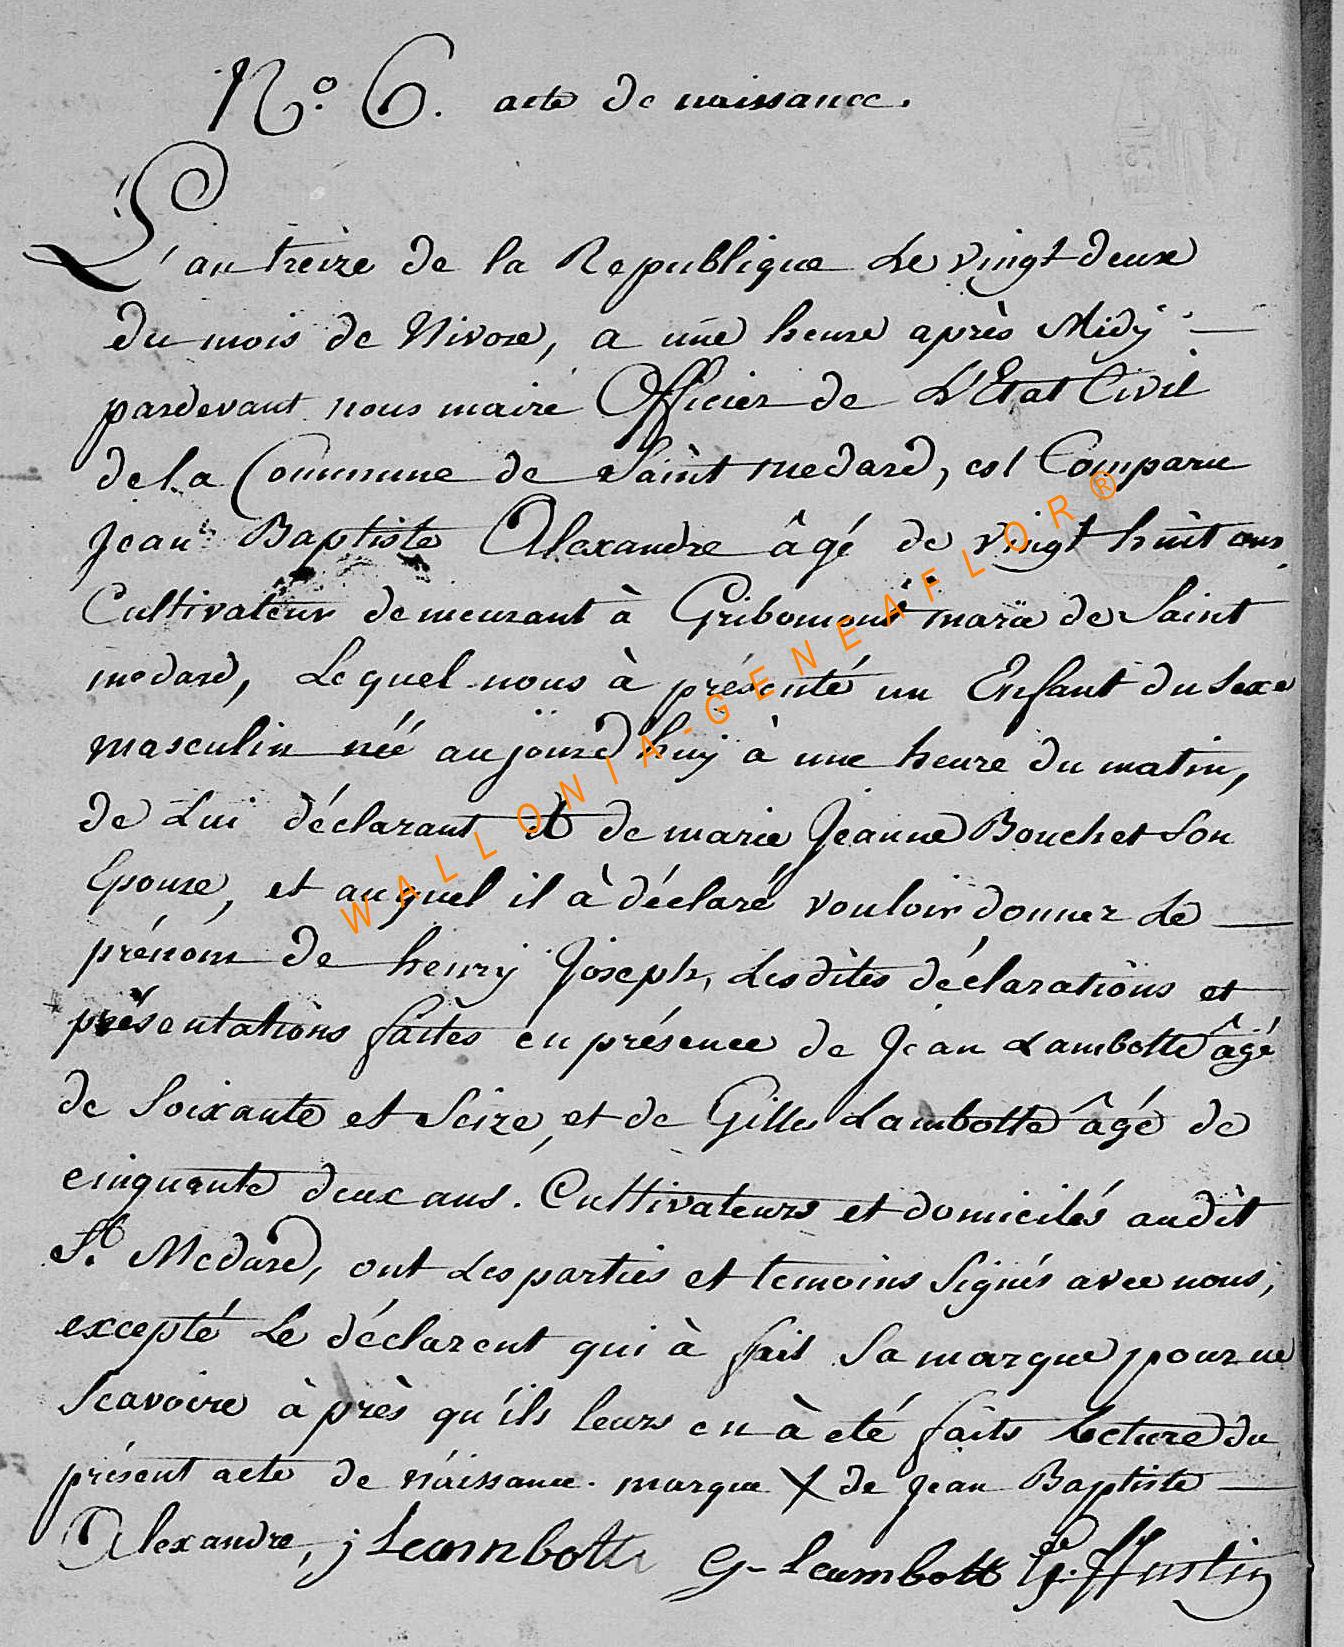 N.º 6. acte de naissance.
L'an treize de la Republique Le vingt deux
du mois de Nivose, a une heure après Midÿ
pardevant nous maire Officier de L'Etat Civil
de la Commune de Saint medard, est Comparu
Jean Baptiste Alexandre âgé de vingt huit ans
Cultivateur demeurant à Gribomont de Saint
medard, Lequel nous à présenté un Enfant du Sexe
masculin née aujourd'huÿ à une heure du matin,
de Lui déclarant et de marie Jeanne Bouchet Son
Epouse, et auquel il à déclaré vouloir donner Le
prénom de henrÿ Joseph, Lesdites déclarations et
présentations faites en présence de Jean Lambotte âgé
de Soixante et Seize, et de Gilles Lambotte âgé de
cinquante deux ans. Cultivateurs et domicilés audit
St. Medard, ont Les parties et temoins Signés avec nous,
excepté Le déclarent qui à fait Sa marque pour ne
Scavoire à près qu'ils leurs en à eté faits Lecture du
présent acte de naissance. marque X de Jean Baptiste
Alexandre, j Leambotte G-Leambott
WALLONIA-GENEAFLOR®